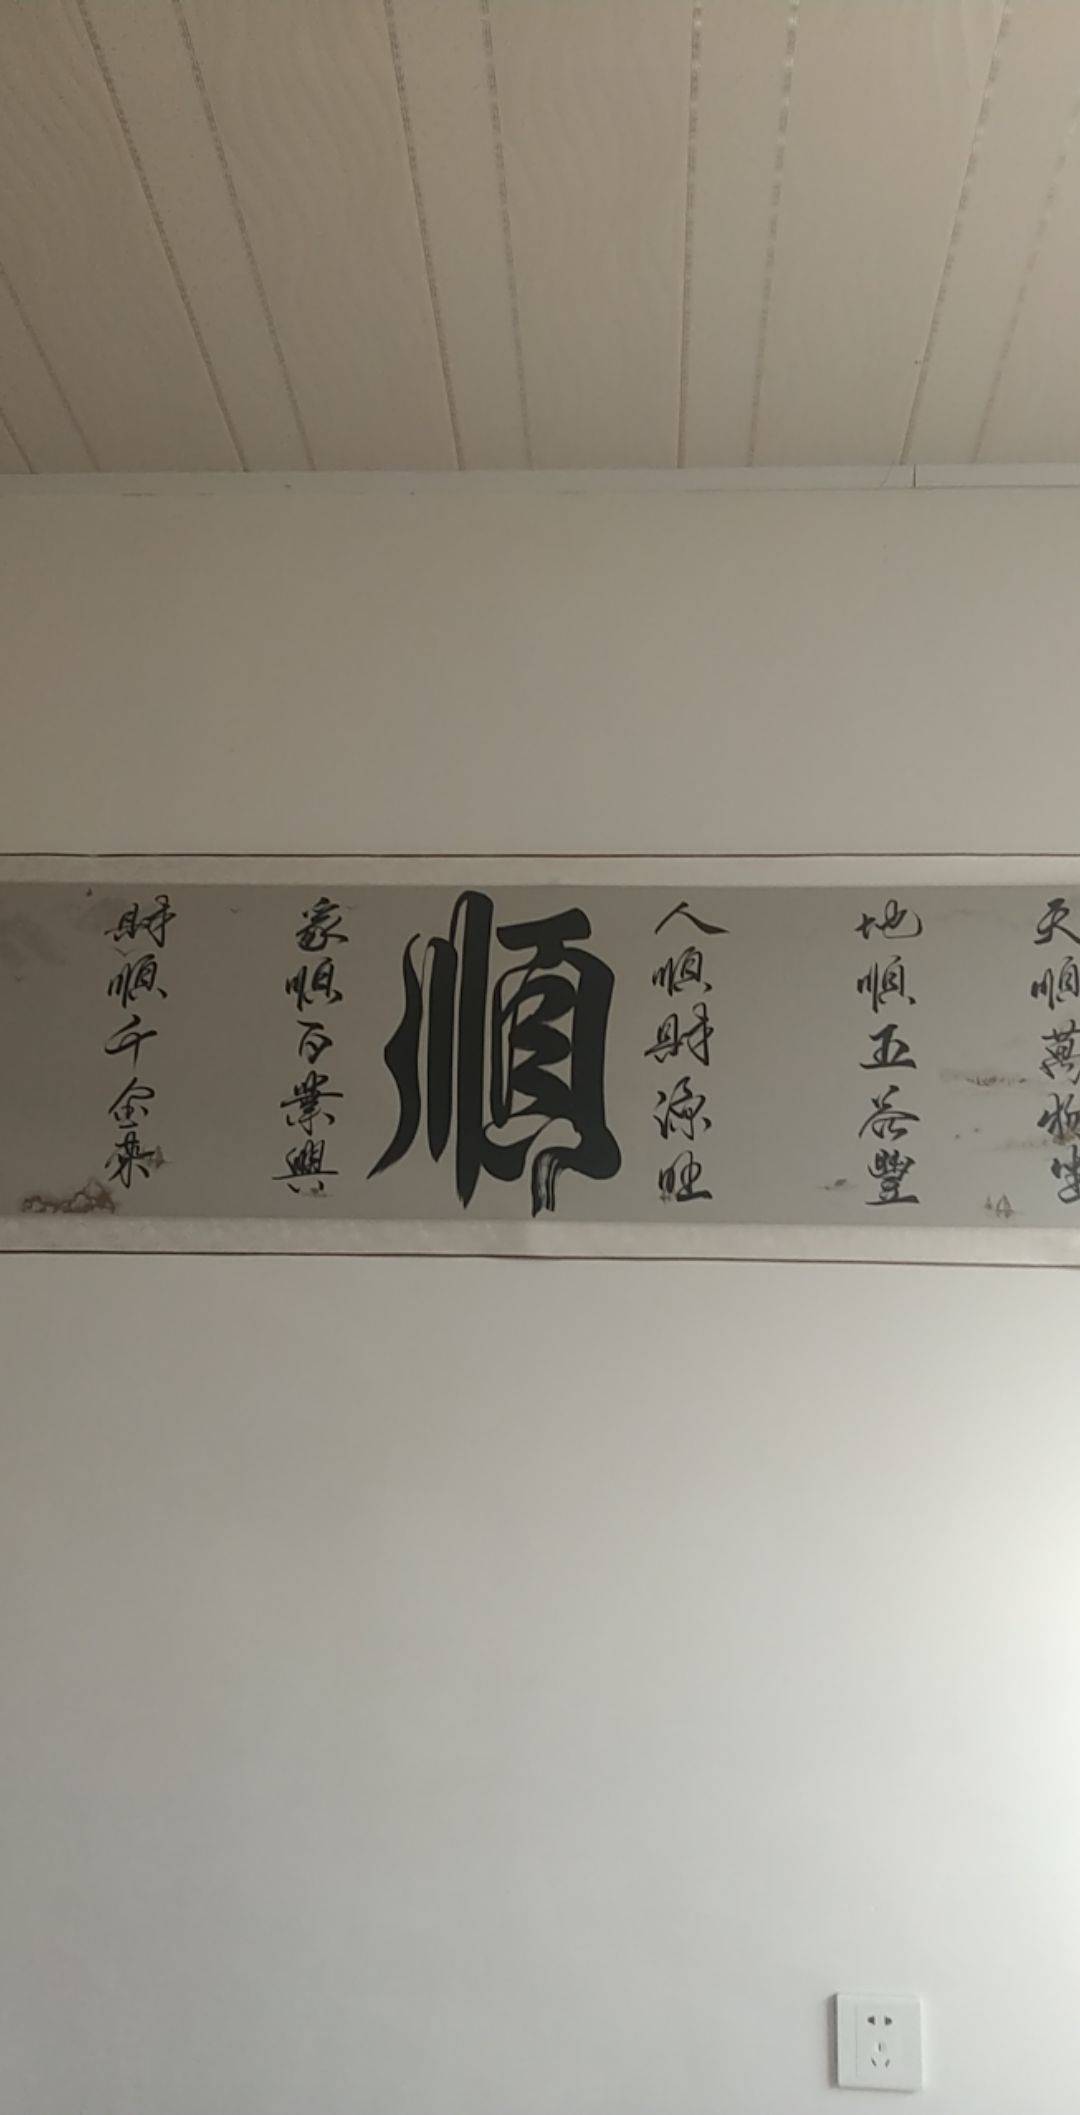 天順萬物生
地順五谷豐
人順財源旺
順
家順百業興
財順千金來